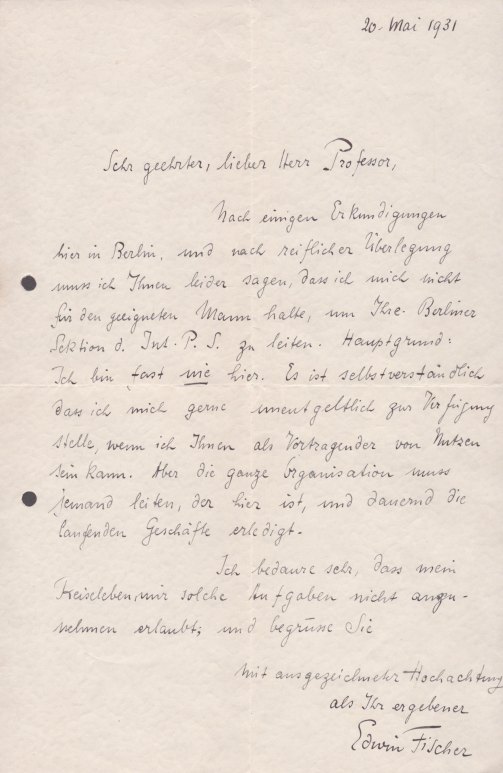 20. Mai 1931
Sehr geehrter, lieber Herr Professor,
Nach einigen Erkundigungen
hier in Berlin, und nach reiflicher Überlegung
muss ich Ihnen leider sagen, dass ich mich nicht
für den geeigneten Mann halte, um Ihre Berliner
Sektion d. Int. P. S. zu leiten. Hauptgrund:
Ich bin fast nie hier. Es ist selbstverständlich
dass ich mich gerne unentgeltlich zur Verfügung
stelle, wenn ich Ihnen als Vortragender von Nutzen
sein kann. Aber die ganze Organisation muss
jemand leiten, der hier ist, und dauernd die
laufenden Geschäfte erledigt.
Ich bedaure sehr, dass mein
Reiseleben mir solche Aufgaben nicht anzu-
nehmen erlaubt; und begrüsse Sie
mit ausgezeichneter Hochachtung
als Ihr ergebener
Edwin Fischer